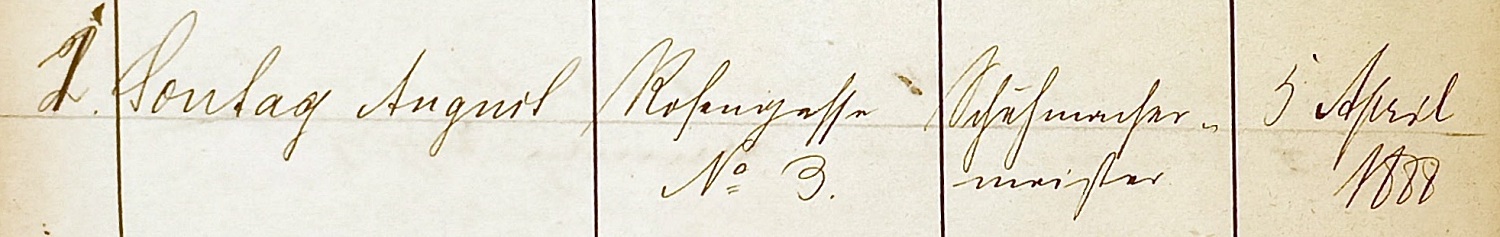 1. Sontag August Rosengasse Schuhmacher-
No 3. meister
5 April
1888